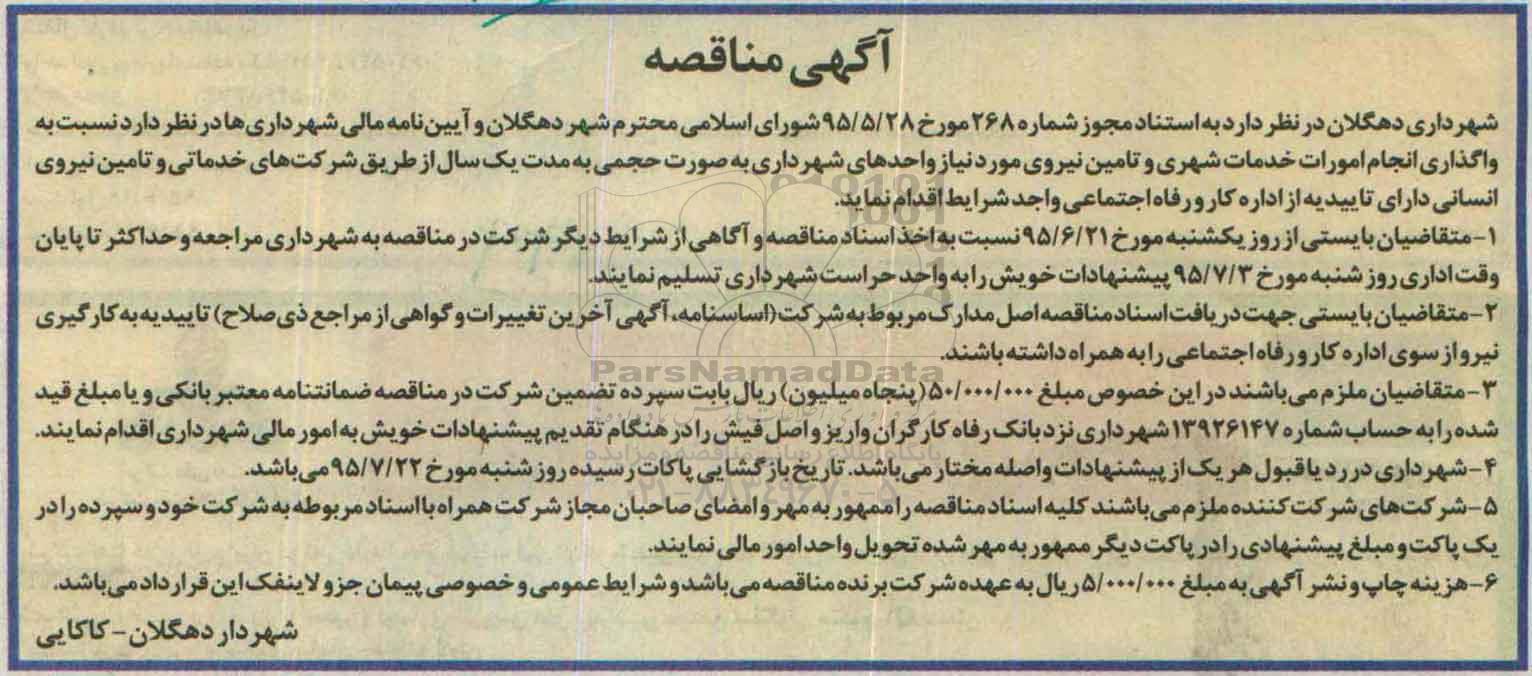 آگهی مناقصه
شهرداری دهگلان در نظر دارد به استناد مجوز شماره ۲۶۸ مورخ ۹۵/۵/۲۸ شورای اسلامی محترم شهر دهگلان و آیین‌نامه مالی شهرداری‌ها در نظر دارد نسبت به
واگذاری انجام امورات خدمات شهری و تامین نیروی مورد نیاز واحدهای شهرداری به صورت حجمی به مدت یک سال از طریق شرکت‌های خدماتی و تامین نیروی
انسانی دارای تاییدیه از اداره کار و رفاه اجتماعی واجد شرایط اقدام نماید.
۱-متقاضیان بایستی از روز یکشنبه مورخ ۹۵/۶/۲۱ نسبت به اخذ اسناد مناقصه و آگاهی از شرایط دیگر شرکت در مناقصه به شهرداری مراجعه و حداکثر تا پایان
وقت اداری روز شنبه مورخ ۹۵/۷/۳ پیشنهادات خویش را به واحد حراست شهرداری تسلیم نمایند.
۲-متقاضیان بایستی جهت دریافت اسناد مناقصه اصل مدارک مربوط به شرکت (اساسنامه، آگهی آخرین تغییرات و گواهی از مراجع ذی صلاح) تاییدیه به کارگیری
نیرو از سوی اداره کار و رفاه اجتماعی را به همراه داشته باشند.
ParsNamadData
۳-متقاضیان ملزم می‌باشند در این خصوص مبلغ ۵۰/۰۰۰/۰۰۰ (پنجاه میلیون) ریال بابت سپرده تضمین شرکت در مناقصه ضمانتنامه معتبر بانکی و یا مبلغ قید
شده را به حساب شماره ۱۳۹۲۶۱۴۷ شهرداری نزد بانک رفاه کارگران واریز و اصل فیش را در هنگام تقدیم پیشنهادات خویش به امور مالی شهرداری اقدام نمایند.
پایگاه اطلاع رسانی مناقصه و مزایده
۴-شهرداری در رد یا قبول هر یک از پیشنهادات واصله مختار می‌باشد. تاریخ بازگشایی پاکات رسیده روز شنبه مورخ ۹۵/۷/۲۲ می‌باشد.
۵-شرکت‌های شرکت کننده ملزم می‌باشند کلیه اسناد مناقصه را ممهور به مهر و امضای صاحبان مجاز شرکت همراه با اسناد مربوطه به شرکت خود و سپرده را در
یک پاکت و مبلغ پیشنهادی را در پاکت دیگر ممهور به مهر شده تحویل واحد امور مالی نمایند.
۶-هزینه چاپ و نشر آگهی به مبلغ ۵/۰۰۰/۰۰۰ ریال به عهده شرکت برنده مناقصه می‌باشد و شرایط عمومی و خصوصی پیمان جزو لاینفک این قرارداد می‌باشد.
شهردار دهگلان - کاکایی